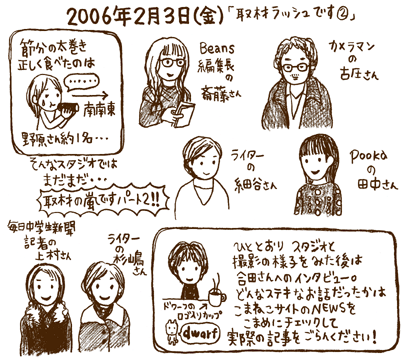 2006年2月3日(金)「取材ラッシュです②」
節分の太巻き
正しく食べたのは
‥‥‥
南南東
野原さん約1名・・・
Beans
編集長
の
斎藤さん
カメラマン
の
古圧さん
そんなスタジオでは
まだまだ・・・
取材の嵐ですパート2!!
ライター
の
細谷さん
pooka
の
田中さん
毎日中学生新聞
記者の
上村さん
ライター
の
杉嶋
さん
ひととおり スタジオと
撮影の様子をみた後は
合田さんへのインタビュー。
どんなステキなお話だったかは
こまねこサイトのNEWSを
こまめにチェックして
実際の記事をごらんください!
ドワーフの
ロゴ入りカップ
dwarf